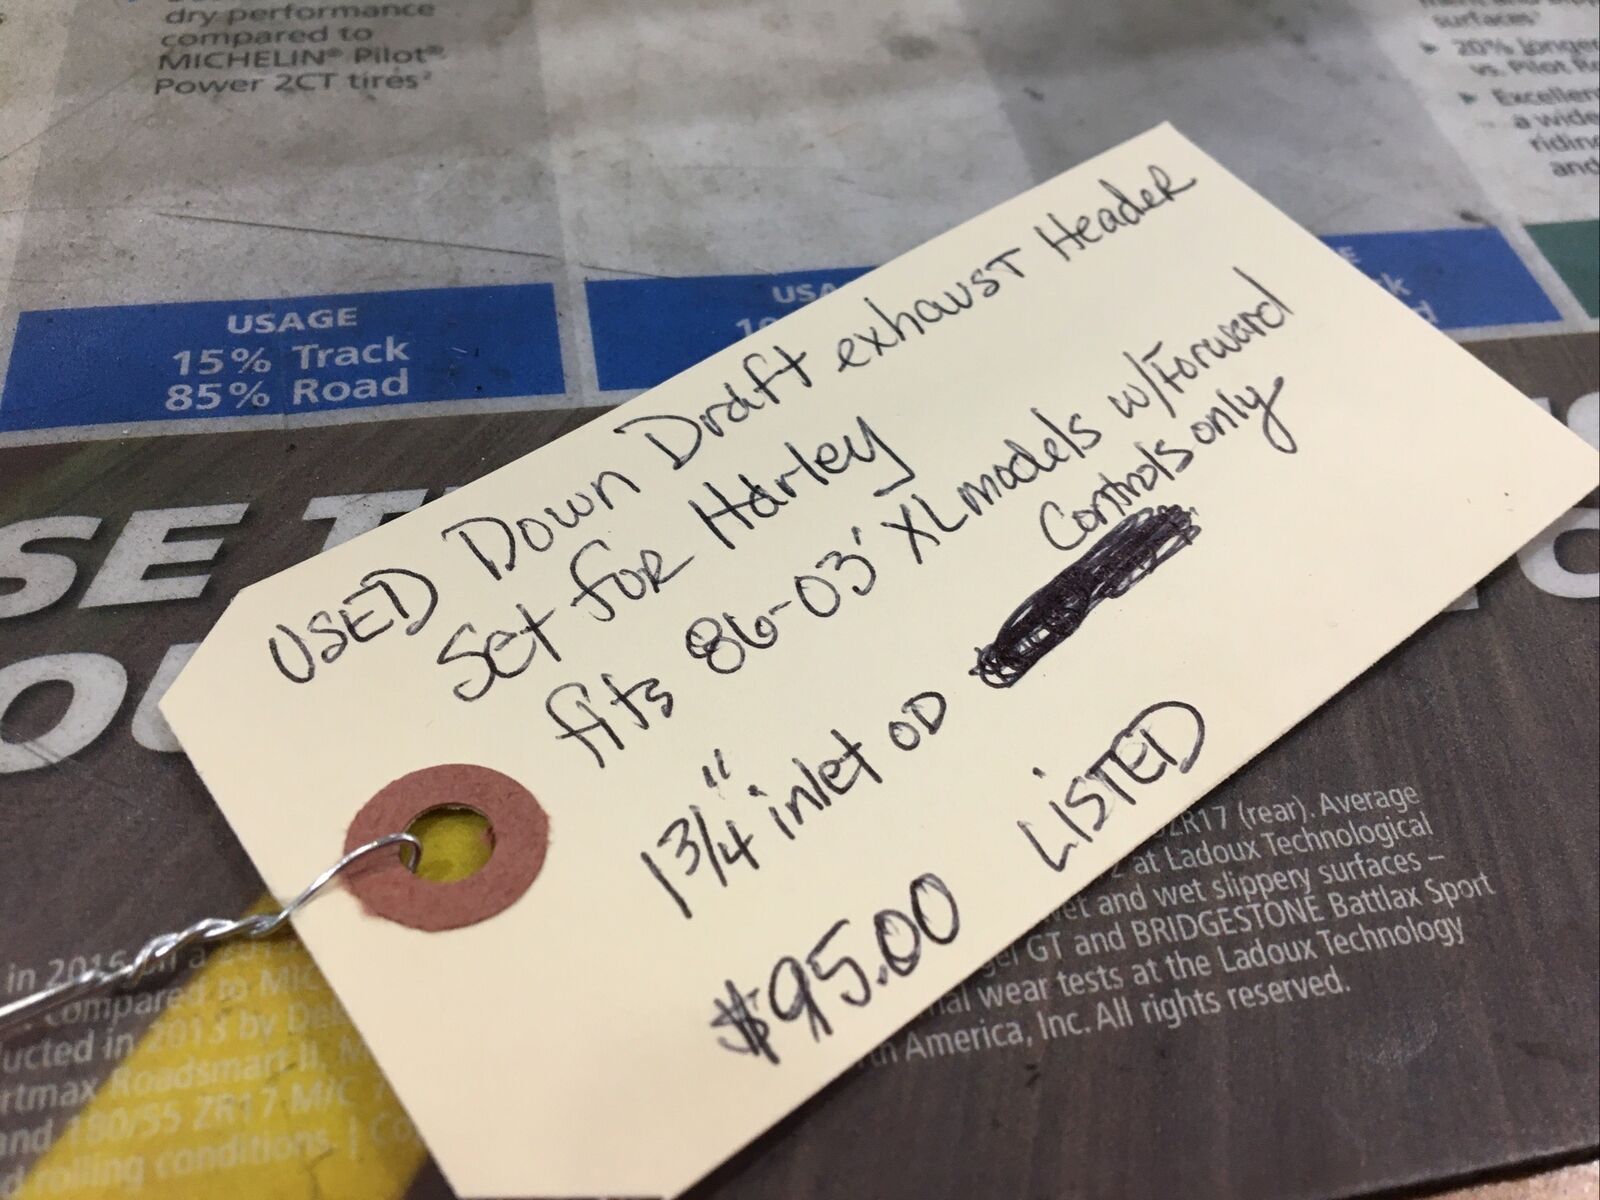 dry performance
compared to
MICHELIN® Pilot®
Power 2CT tires²
surfaces¹
20% longer
vs. Pilot
Excellen
a wide
riding
and
USAGE
15% Track
85% Road
USED Down Draft exhaust Header
Set for Harley
fits 86-03' XL models w/Forward
Controls only
1 3/4" inlet OD
$95.00 LiSTED
ZR17 (rear). Average
at Ladoux Technological
and wet slippery surfaces –
GT and BRIDGESTONE Battlax Sport
wear tests at the Ladoux Technology
America, Inc. All rights reserved.
in 2015
compared to
ucted in 2013 by
Roadsmart II,
and 180/55 ZR17 M/C
rolling conditions. |